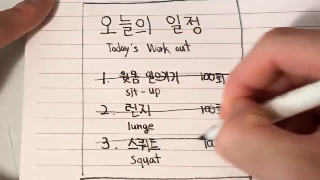 오늘의 일정
Today's Work out
1. 윗몸 일으키기 100회
sit-up
2. 런지 100회
lunge
3. 스쿼트
squat